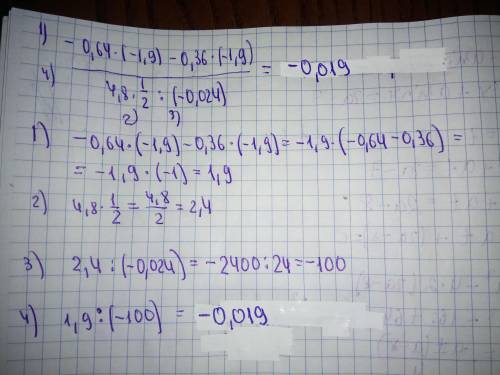 1) -0,64·(-1,9)-0,36·(-1,9)
4) ─────────────── = -0,019
4,8·1/2 : (-0,024)
2) 3)
1) -0,64·(-1,9)-0,36·(-1,9)=-1,9·(-0,64-0,36)=
=-1,9·(-1)=1,9
2) 4,8·1/2=4,8/2=2,4
3) 2,4:(-0,024)=-2400:24=-100
4) 1,9:(-100)=-0,019